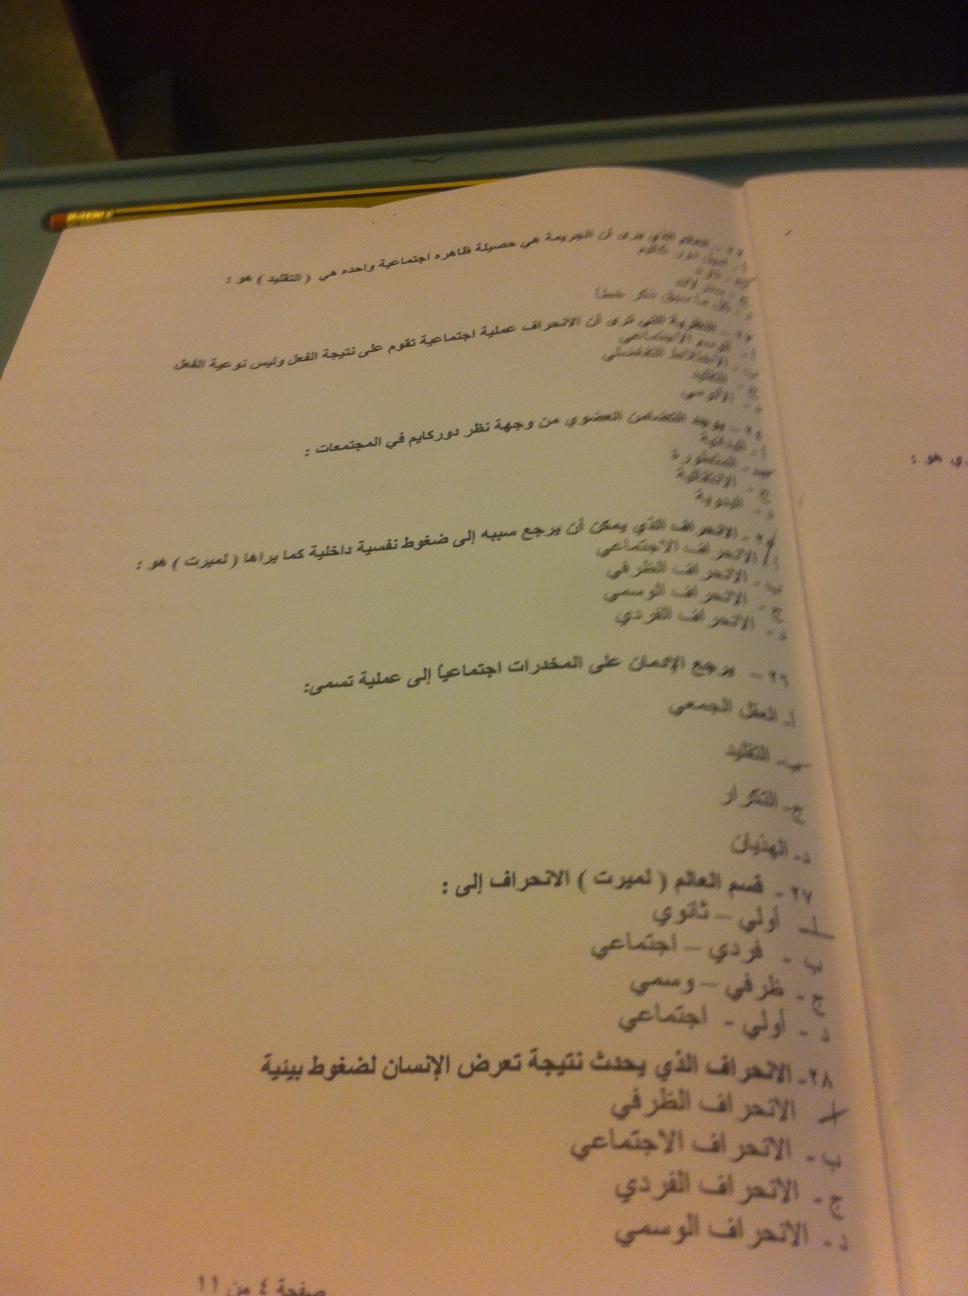 ٢٢ - العالم الذي يرى أن الجريمة هي حصيلة ظاهره اجتماعية واحده هي ( التقليد ) هو :
أ -
ب - تارد
ج -
د - كل ما سبق ذكر خطأ
٢٣ - النظرية التي ترى أن الانحراف عملية اجتماعية تقوم على نتيجة الفعل وليس نوعية الفعل
أ - الوسم الاجتماعي
ب - الاختلاط التفاضلي
ج - التقليد
د - الانومي
٢٤ - يوجد التضامن العضوي من وجهة نظر دوركايم في المجتمعات :
أ - البدائية
ب - المتطورة
ج - الانتقالية
د - البدوية
٢٥ - الانحراف الذي يمكن أن يرجع سببه إلى ضغوط نفسية داخلية كما يراها ( لميرت ) هو :
أ - الانحراف الاجتماعي
ب - الانحراف الظرفي
ج - الانحراف الوسمي
د - الانحراف الفردي
٢٦ - يرجع الإدمان على المخدرات اجتماعياً إلى عملية تسمى:
أ- العقل الجمعي
ب- التقليد
ج- التكرار
د- الهذيان
٢٧ - قسم العالم ( لميرت ) الانحراف إلى :
أ - أولي – ثانوي
ب - فردي – اجتماعي
ج - ظرفي – وسمي
د - أولي - اجتماعي
٢٨- الانحراف الذي يحدث نتيجة تعرض الإنسان لضغوط بيئية
أ - الانحراف الظرفي
ب - الانحراف الاجتماعي
ج - الانحراف الفردي
د - الانحراف الوسمي
صفحة ٤ من ١١
هو :